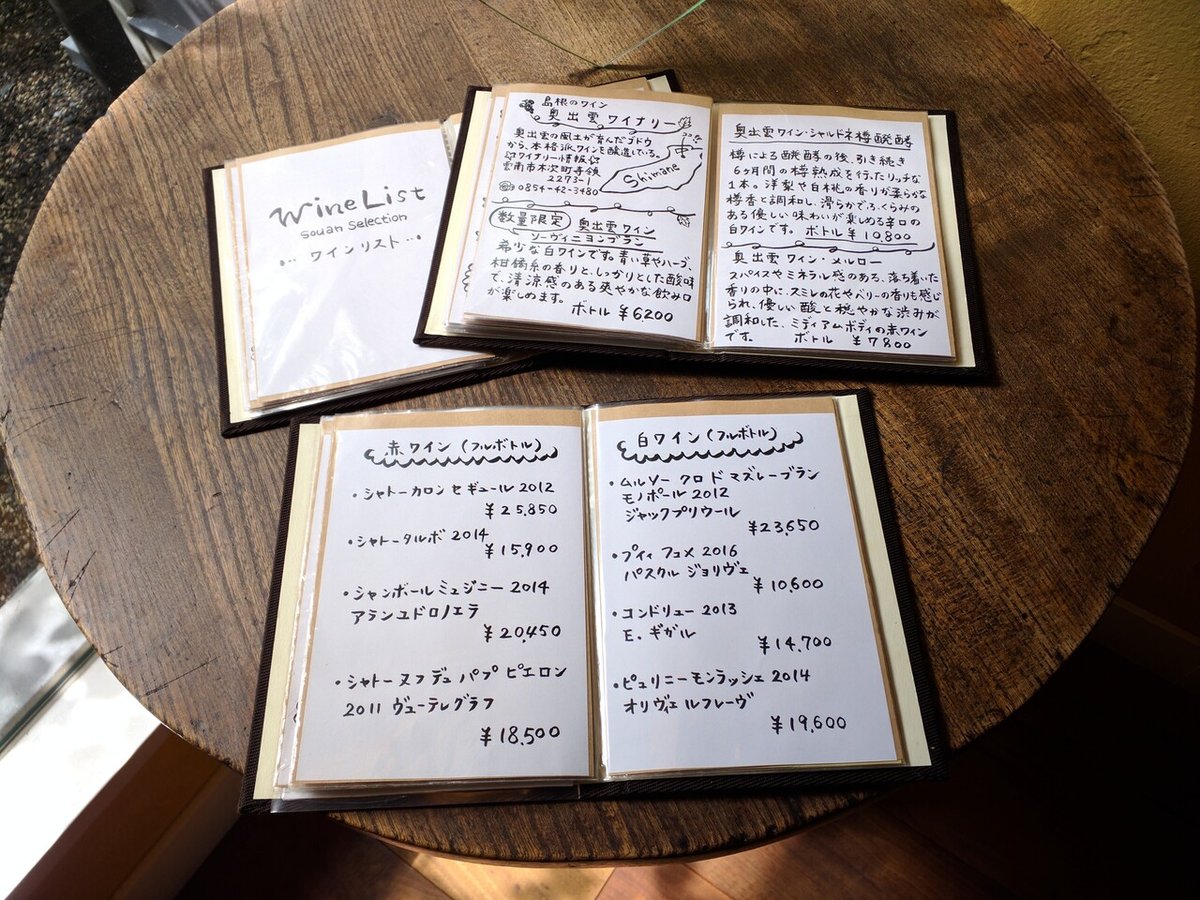 Wine List
Souan Selection
ワインリスト
島根のワイン
奥出雲ワイナリー
奥出雲の風土が育んだブドウ
から、本格派ワインを醸造している。
☆ワイナリー情報☆
雲南市木次町寺領
2273-1
☎0854-42-3480
ココだよ
Shimane
数量限定 奥出雲ワイン
ソーヴィニヨンブラン
希少な白ワインです。青い草やハーブ、
柑橘系の香りと、しっかりとした酸味
で、清涼感のある爽やかな飲み口
が楽しめます。
ボトル ¥6,200
奥出雲ワイン・シャルドネ樽醗酵
樽による醗酵の後、引き続き
6ヶ月間の樽熟成を行ったリッチな
1本。洋梨や白桃の香りが柔らかな
樽香と調和し、滑らかでふくらみの
ある優しい味わいが楽しめる辛口の
白ワインです。 ボトル ¥10,800
奥出雲ワイン・メルロー
スパイスやミネラル感のある、落ち着いた
香りの中に、スミレの花やベリーの香りも感じ
られ、優しい酸と穏やかな渋みが
調和した、ミディアムボディの赤ワイン
です。 ボトル ¥7,800
赤ワイン(フルボトル)
・シャトーカロンセギュール 2012
¥25,850
・シャトータルボ 2014
¥15,900
・シャンボールミュジニー 2014
アランユドロノエラ
¥20,450
・シャトーヌフデュ パプ ピエロン
2011 ヴューテレグラフ
¥18,500
白ワイン(フルボトル)
・ムルソー クロ ド マズレーブラン
モノポール 2012
ジャックプリウール
¥23,650
・プイィ フュメ 2016
パスカル ジョリヴェ
¥10,600
・コンドリュー 2013
E. ギガル
¥14,700
・ピュリニーモンラッシェ 2014
オリヴィエ ルフレーヴ
¥19,600